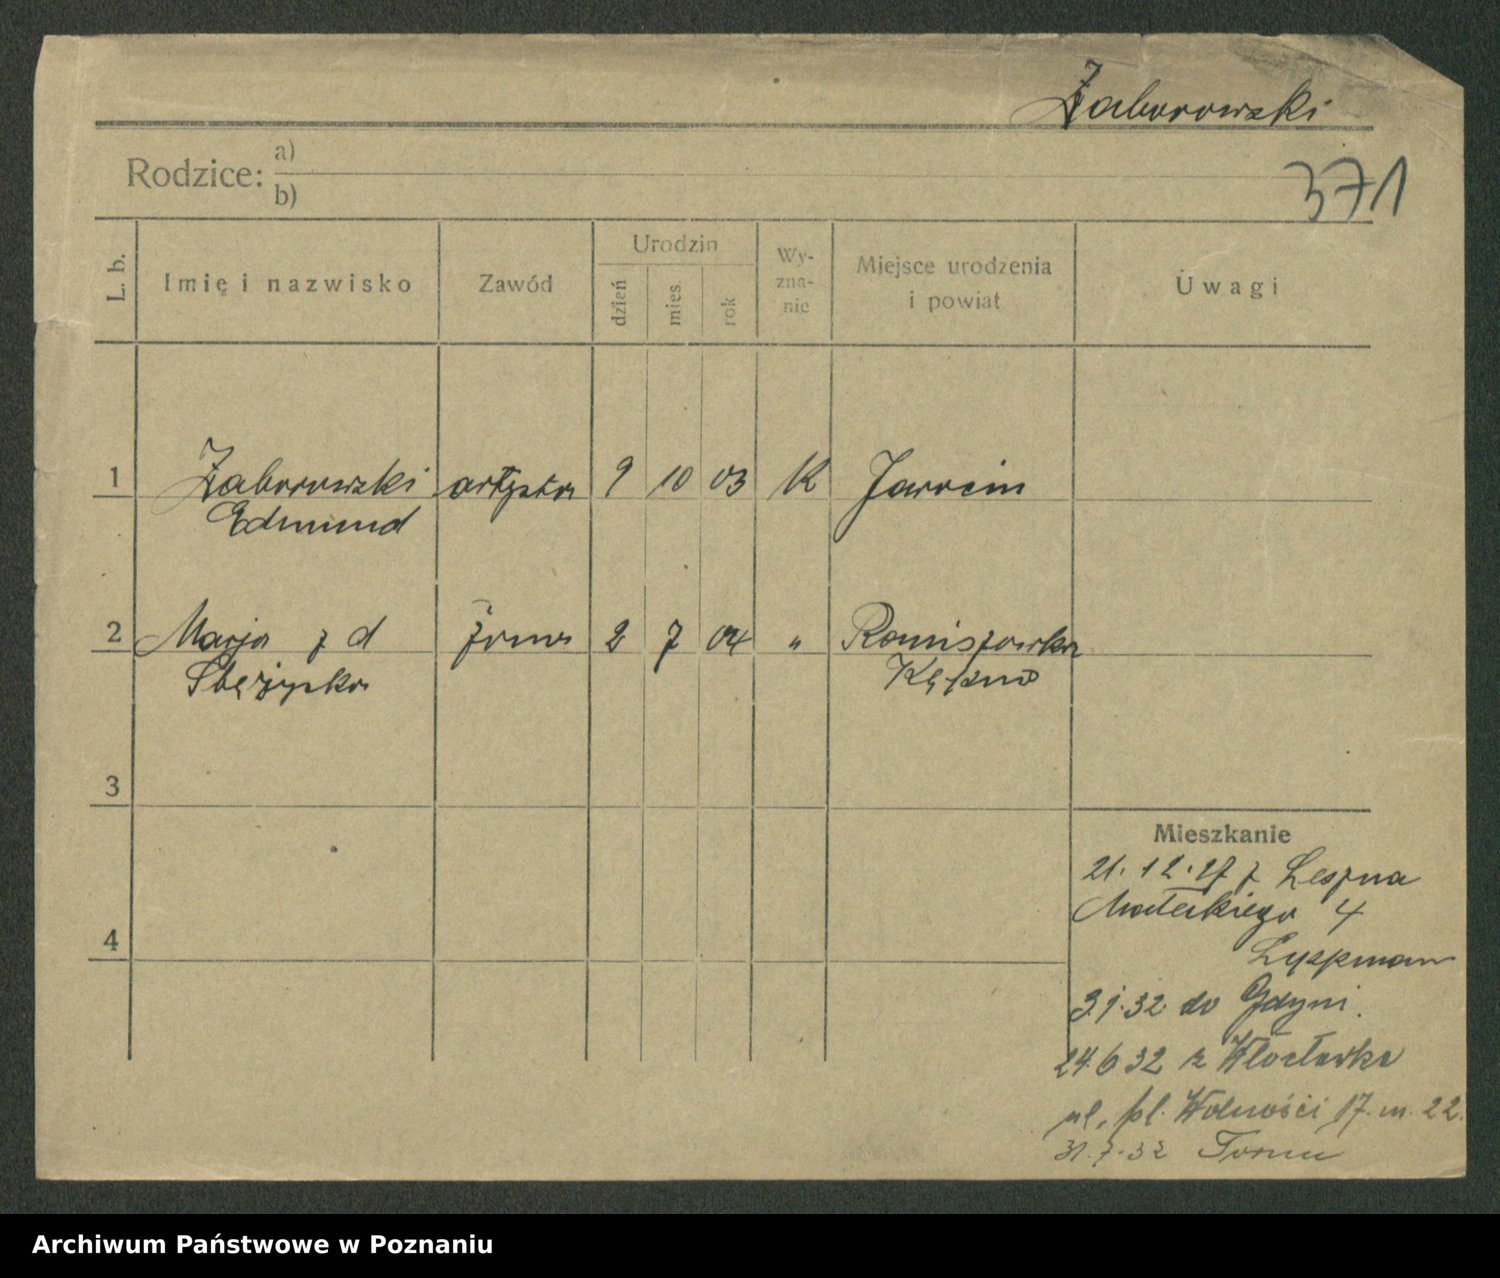 Zaborowski
Rodzice: a)
b)
371
L. b.
Imię i nazwisko
Zawód
Urodzin
dzień
mies.
rok
Wy-
zna-
nie
Miejsce urodzenia
i powiat
Uwagi
1 Zaborowski artysta 9 10 03 K Jarocin
Edmund
2 Marja z d żona 2 7 04 "
Kępno
3
4
Mieszkanie
21.12.27 z Leszna
Małeckiego 4
3.1.32 do Gdyni.
24.6 32 z Włocławka
ul. pl. Wolności 17. m. 22.
31.7.32 Toruń
Archiwum Państwowe w Poznaniu